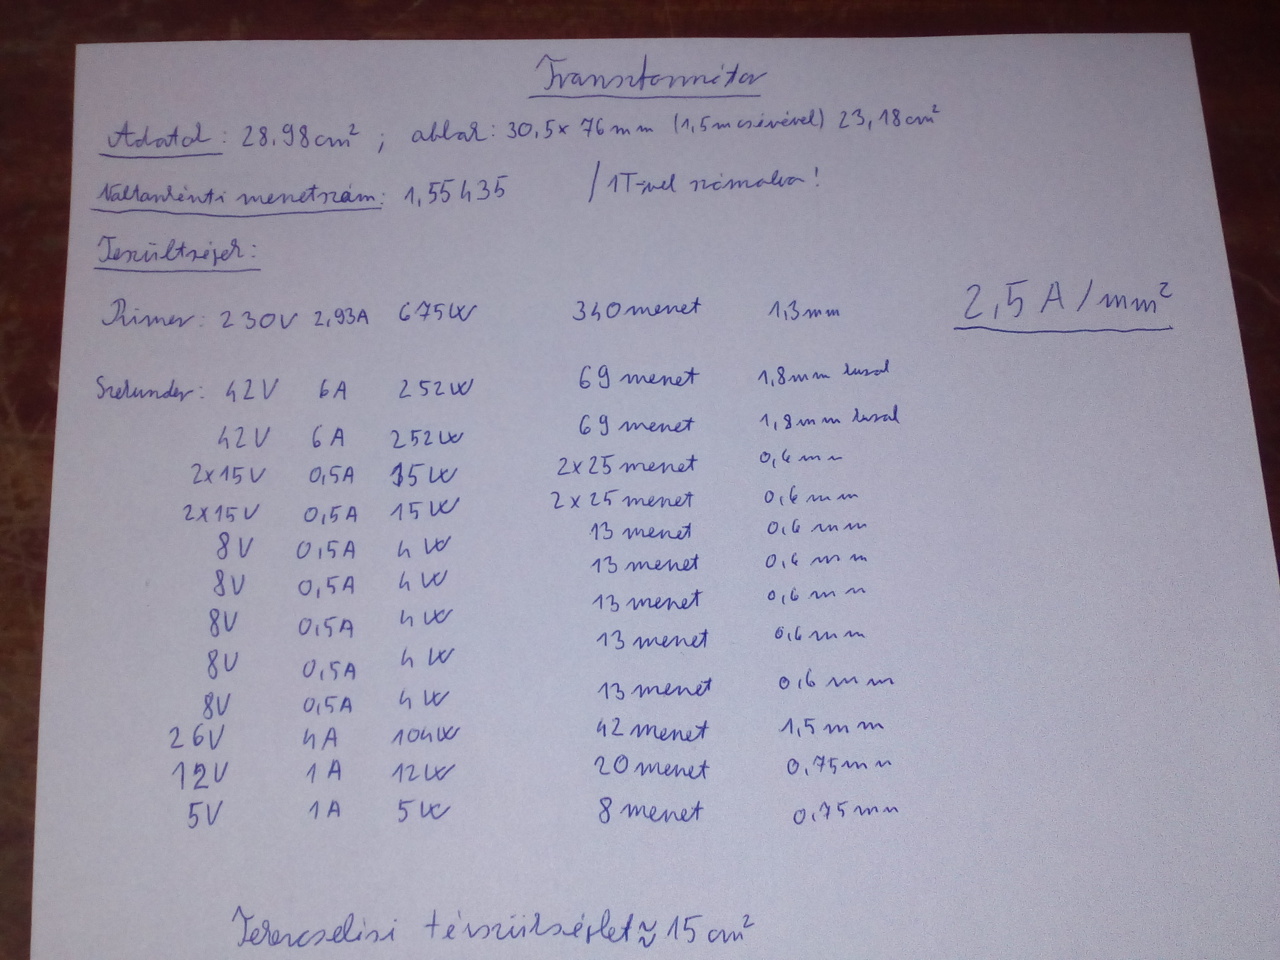 Transzformátor
Adatok: 28,98cm² ; ablak: 30,5x76mm (1,5m csévével) 23,18cm²
Voltonkénti menetszám: 1,55435 /1T-vel számolva!
Feszültségek:
Primer: 230V 2,93A 675W 340menet 1,3mm
2,5A/mm²
Szekunder: 42V 6A 252W 69 menet 1,8mm huzal
42V 6A 252W 69 menet 1,8mm huzal
2x15V 0,5A 15W 2x25 menet 0,6mm
2x15V 0,5A 15W 2x25 menet 0,6mm
8V 0,5A 4W 13 menet 0,6mm
8V 0,5A 4W 13 menet 0,6mm
8V 0,5A 4W 13 menet 0,6mm
8V 0,5A 4W 13 menet 0,6mm
8V 0,5A 4W 13 menet 0,6mm
26V 4A 104W 42 menet 1,5mm
12V 1A 12W 20 menet 0,75mm
5V 1A 5W 8 menet 0,75mm
Tekercselési térszükséglet ≈ 15cm²